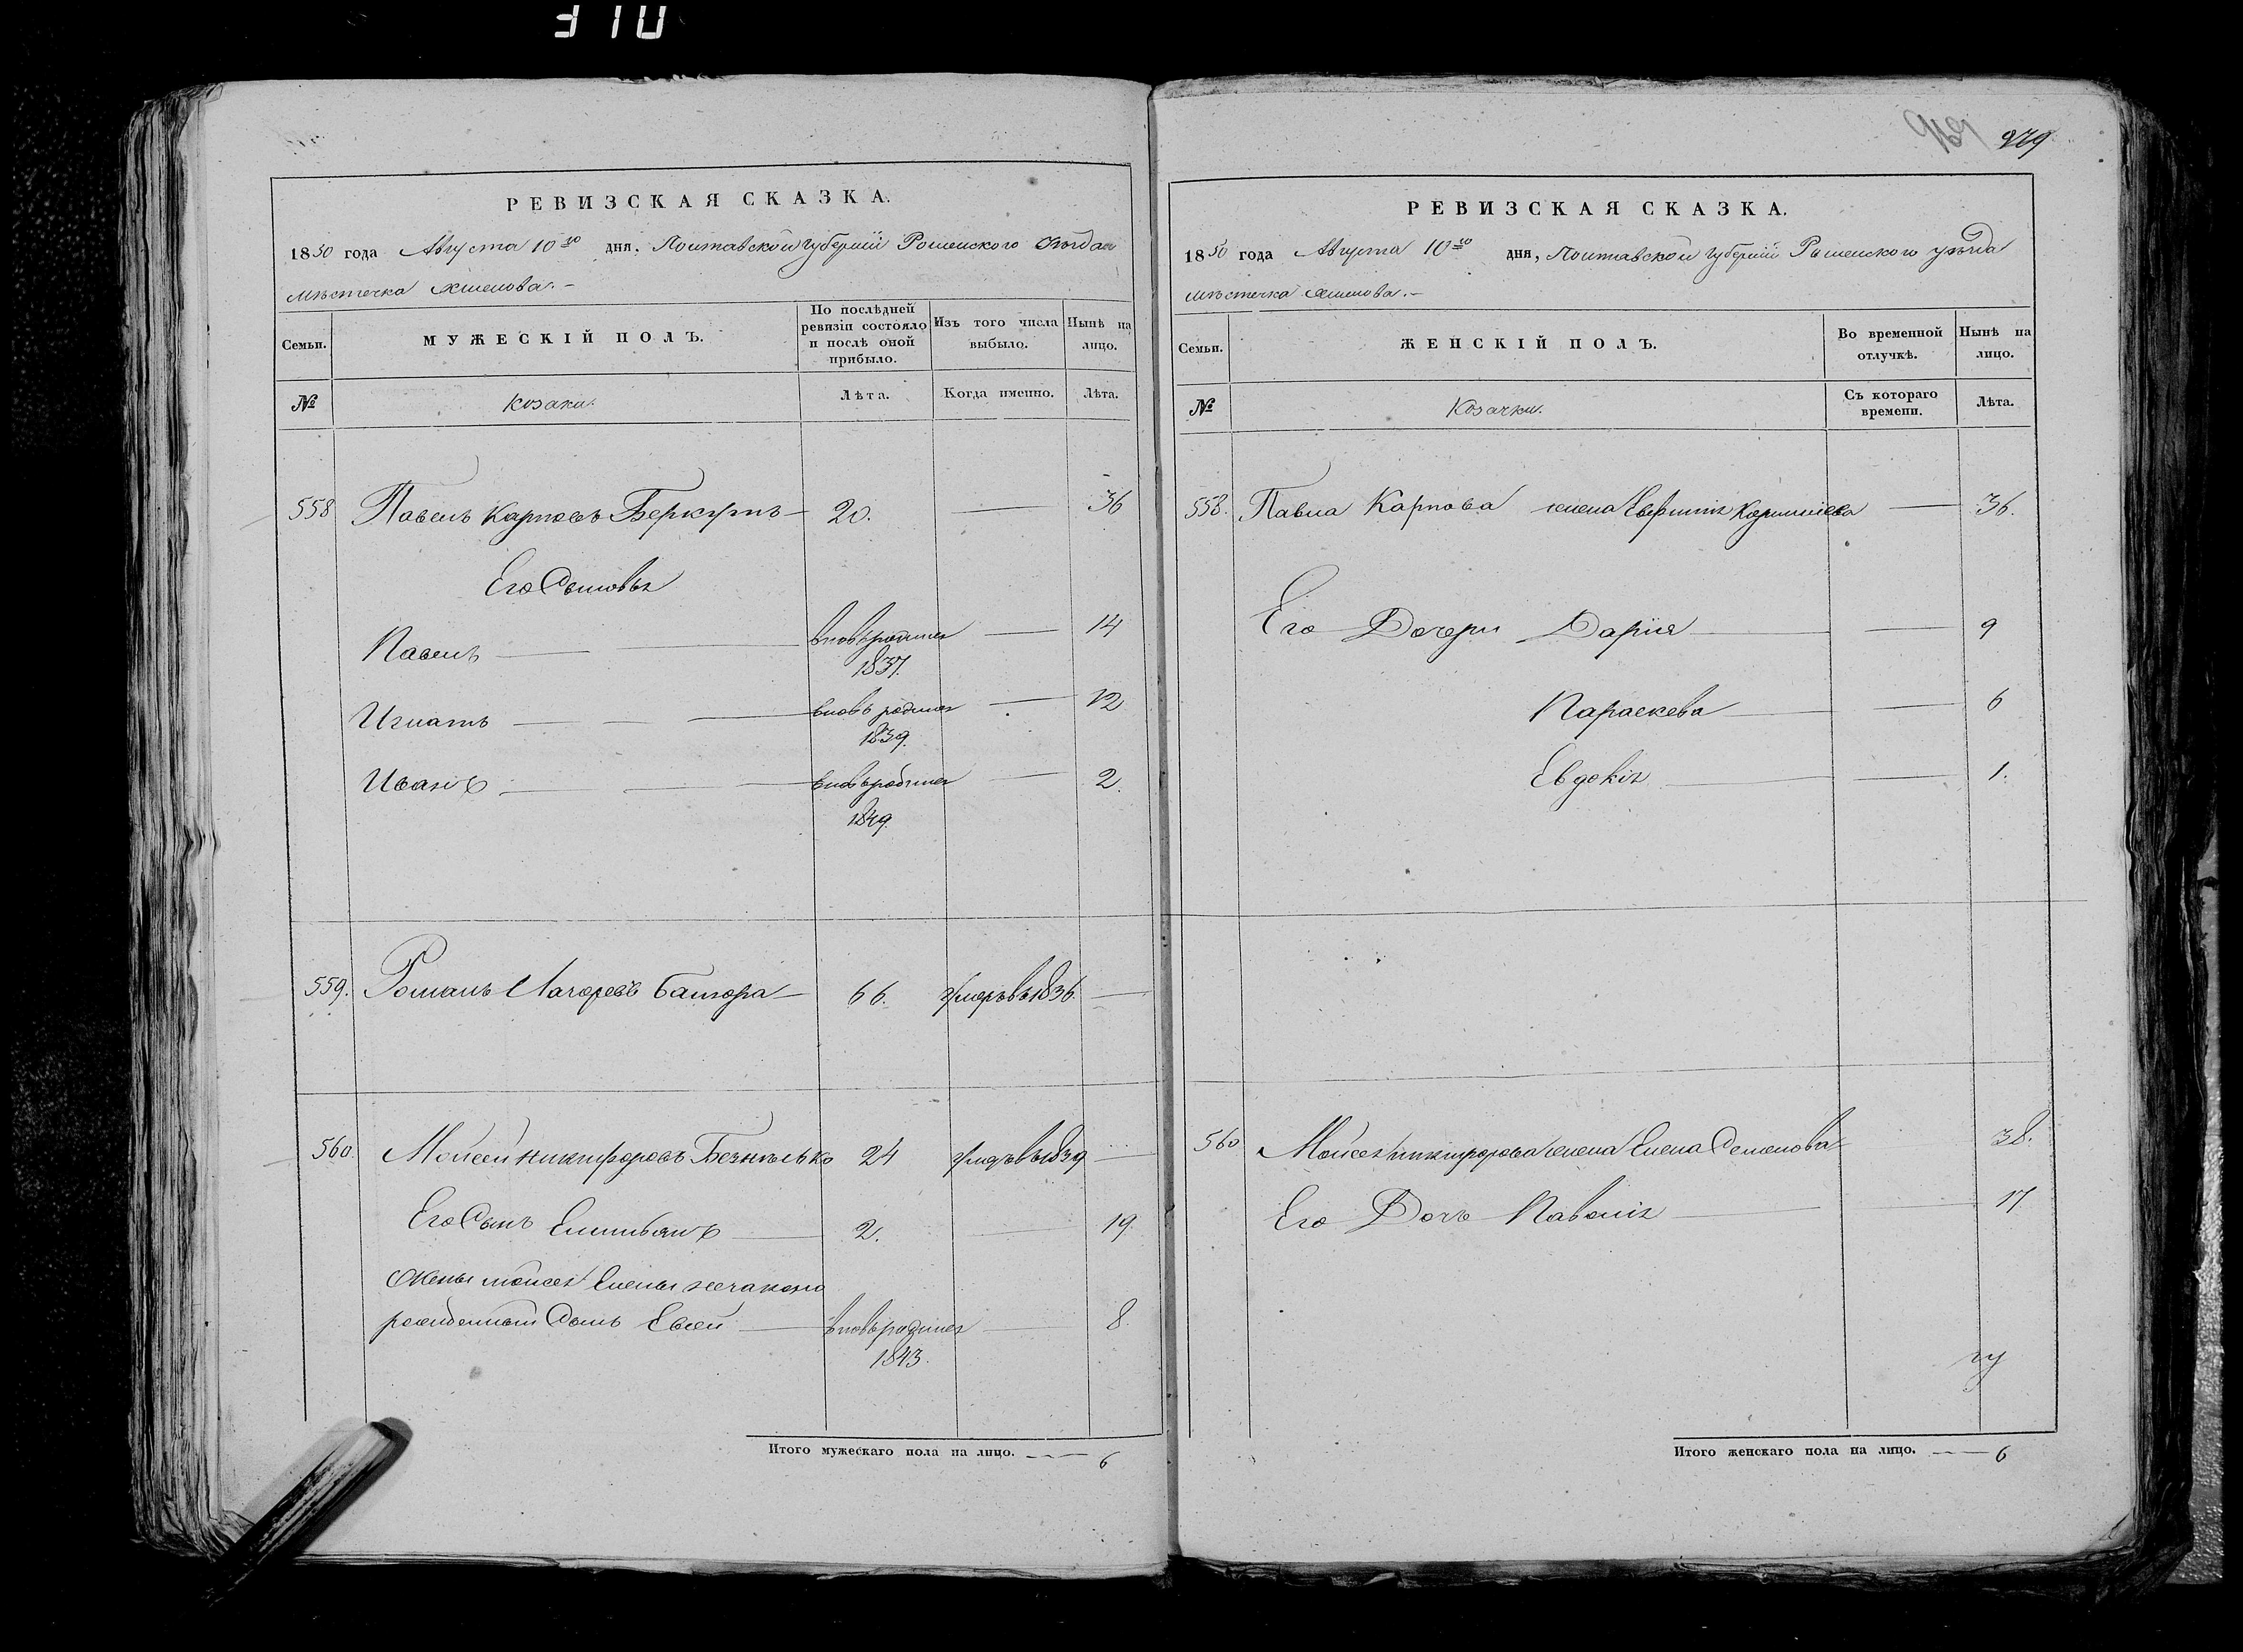 310
РЕВИЗСКАЯ СКАЗКА.
1850 года Августа 10го дня, Полтавской губерніи Роменского уѣзда
мѣстечка
Семьи.
МУЖЕСКІЙ ПОЛЪ.
По послѣдней ревизіи состояло и послѣ оной прибыло.
Изъ того числа выбыло.
Нынѣ на лицо.
№
Козаки.
Лѣта.
Когда именно.
Лѣта.
558 Павелъ Карповъ Беркутъ 20. — 36
Его Сыновья
Павелъ вновь родился — 14
1837.
Игнатъ вновь родился — 12
1839.
Иванъ вновь родился — 2.
1849.
559. Романъ Багмора — 66. умеръ въ 1836. —
560. Мойсей Никифоровъ Безносько 24 умеръ въ 1839 —
Его Сынъ Емильянъ 2. — 19.
Жены Мойсея Елены незаконно
рожденный Сынъ Евсей вновь родился — 8.
1843.
Итого мужескаго пола на лицо. — 6
279
РЕВИЗСКАЯ СКАЗКА.
1850 года Августа 10го дня, Полтавской губерніи Роменского уѣзда
мѣстечка
Семьи.
ЖЕНСКІЙ ПОЛЪ.
Во временной отлучкѣ.
Нынѣ на лицо.
№
Козачки.
Съ котораго времени.
Лѣта.
558. Павла Карпова жена — 36.
Его Дочери Дарія — 9
Параскева — 6
Евдокія — 1.
560 Мойсея Никифорова жена Елена Семенова 38.
Его Дочь 17
Итого женскаго пола на лицо. — 6